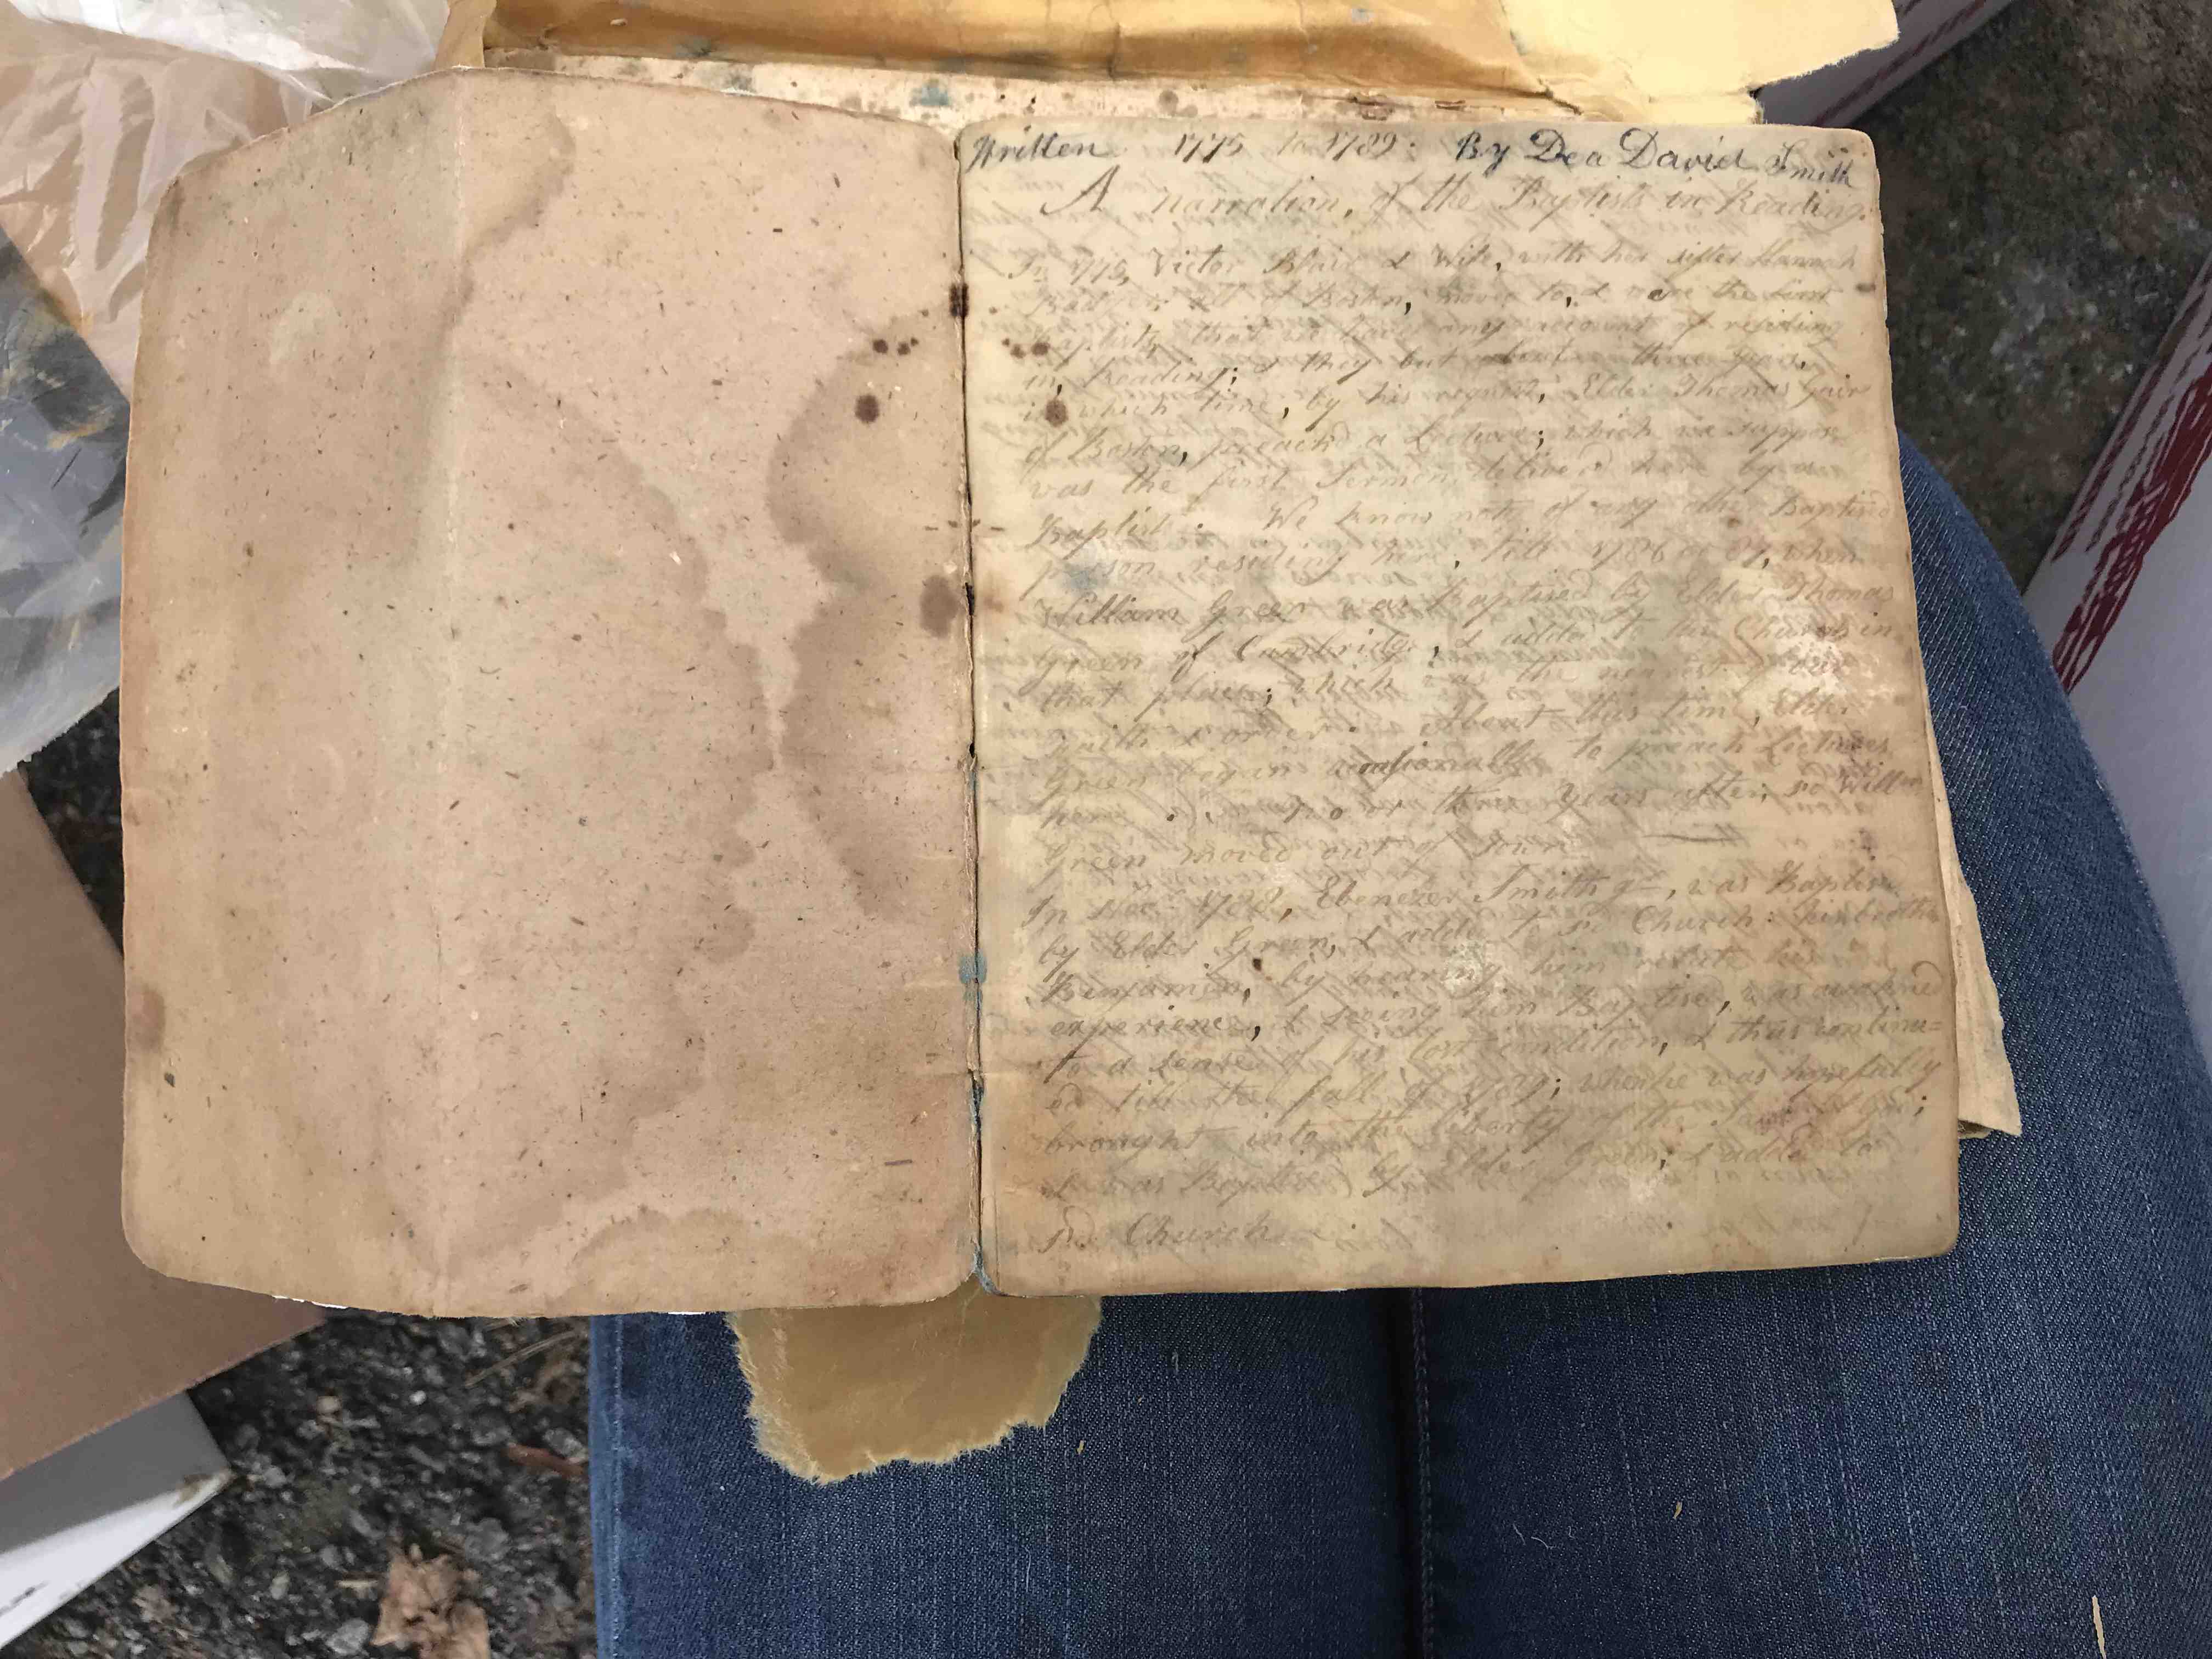 Written 1775 to 1789. By Dea David Smith
A narration, of the Baptists in Reading.
In 1775, Victor Blair & Wife, with her sister Hannah
all of Boston, moved to, & were the first
Baptists that we have any account of residing
in Reading; & they but about three years,
in which time, by his request, Elder Thomas Gair
of Boston, preach'd a Lecture; which we suppose
was the first Sermon deliver'd here by a
Baptist. We know not of any other Baptised
person residing here, till 1786 or 87, when
William Green was Baptised by Elder Thomas
Green of Cambridge, & added to the Church in
that place; which was the nearest of our
faith & order. About this time, Elder
Green began occasionally to preach Lectures
here. Two or three years after, sd Willm
Green moved out of Town
In 1788, Ebenezer Smith, was Baptis'd
by Elder Green, & added to sd Church: his brother
Benjamin, by hearing him relate his
experience, & seeing him Baptised, was awakened
to a sense of his lost condition, & thus continu=
ed till the fall of 1789; when he was hopefully
brought into the liberty of the
& was Baptised by Elder Green; & added to
sd Church